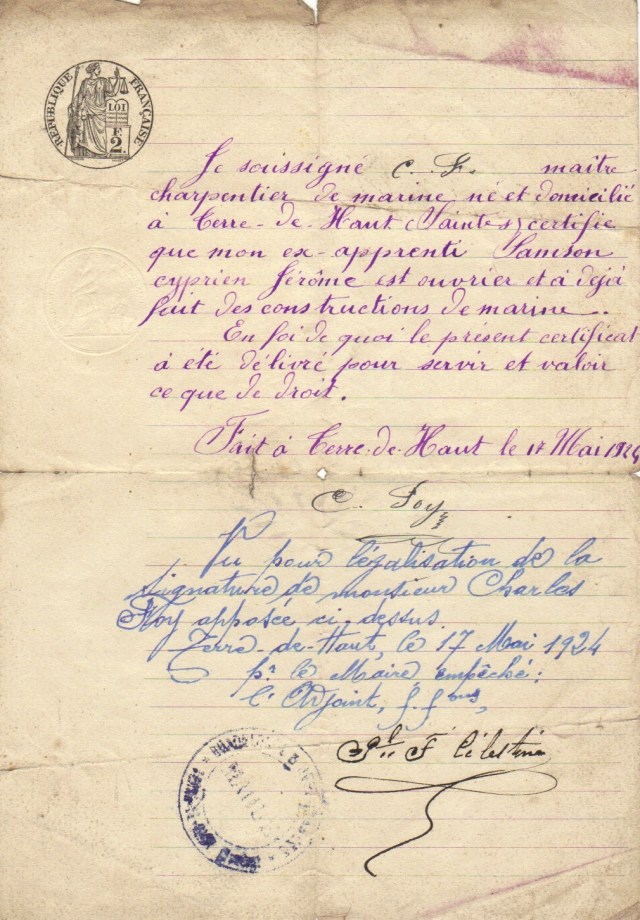 RÉPUBLIQUE FRANÇAISE
LOI
F.
2.
Je soussigné C. F. maître
charpentier de marine né et domicilié
à Terre-de-Haut (Saintes) certifie
que mon ex-apprenti Samson
cyprien Jérôme est ouvrier et à déjà
fait des constructions de marine.
En foi de quoi le présent certificat
à été délivré pour servir et valoir
ce que de droit.
Fait à Terre-de-Haut le 17 Mai 1924
C. Foy
Vu pour légalisation de la
signature de monsieur Charles
Foy apposée ci-dessus.
Terre-de-Haut, le 17 Mai 1924
pr. le Maire empêché:
l'Adjoint, f. fons,
F Célestine